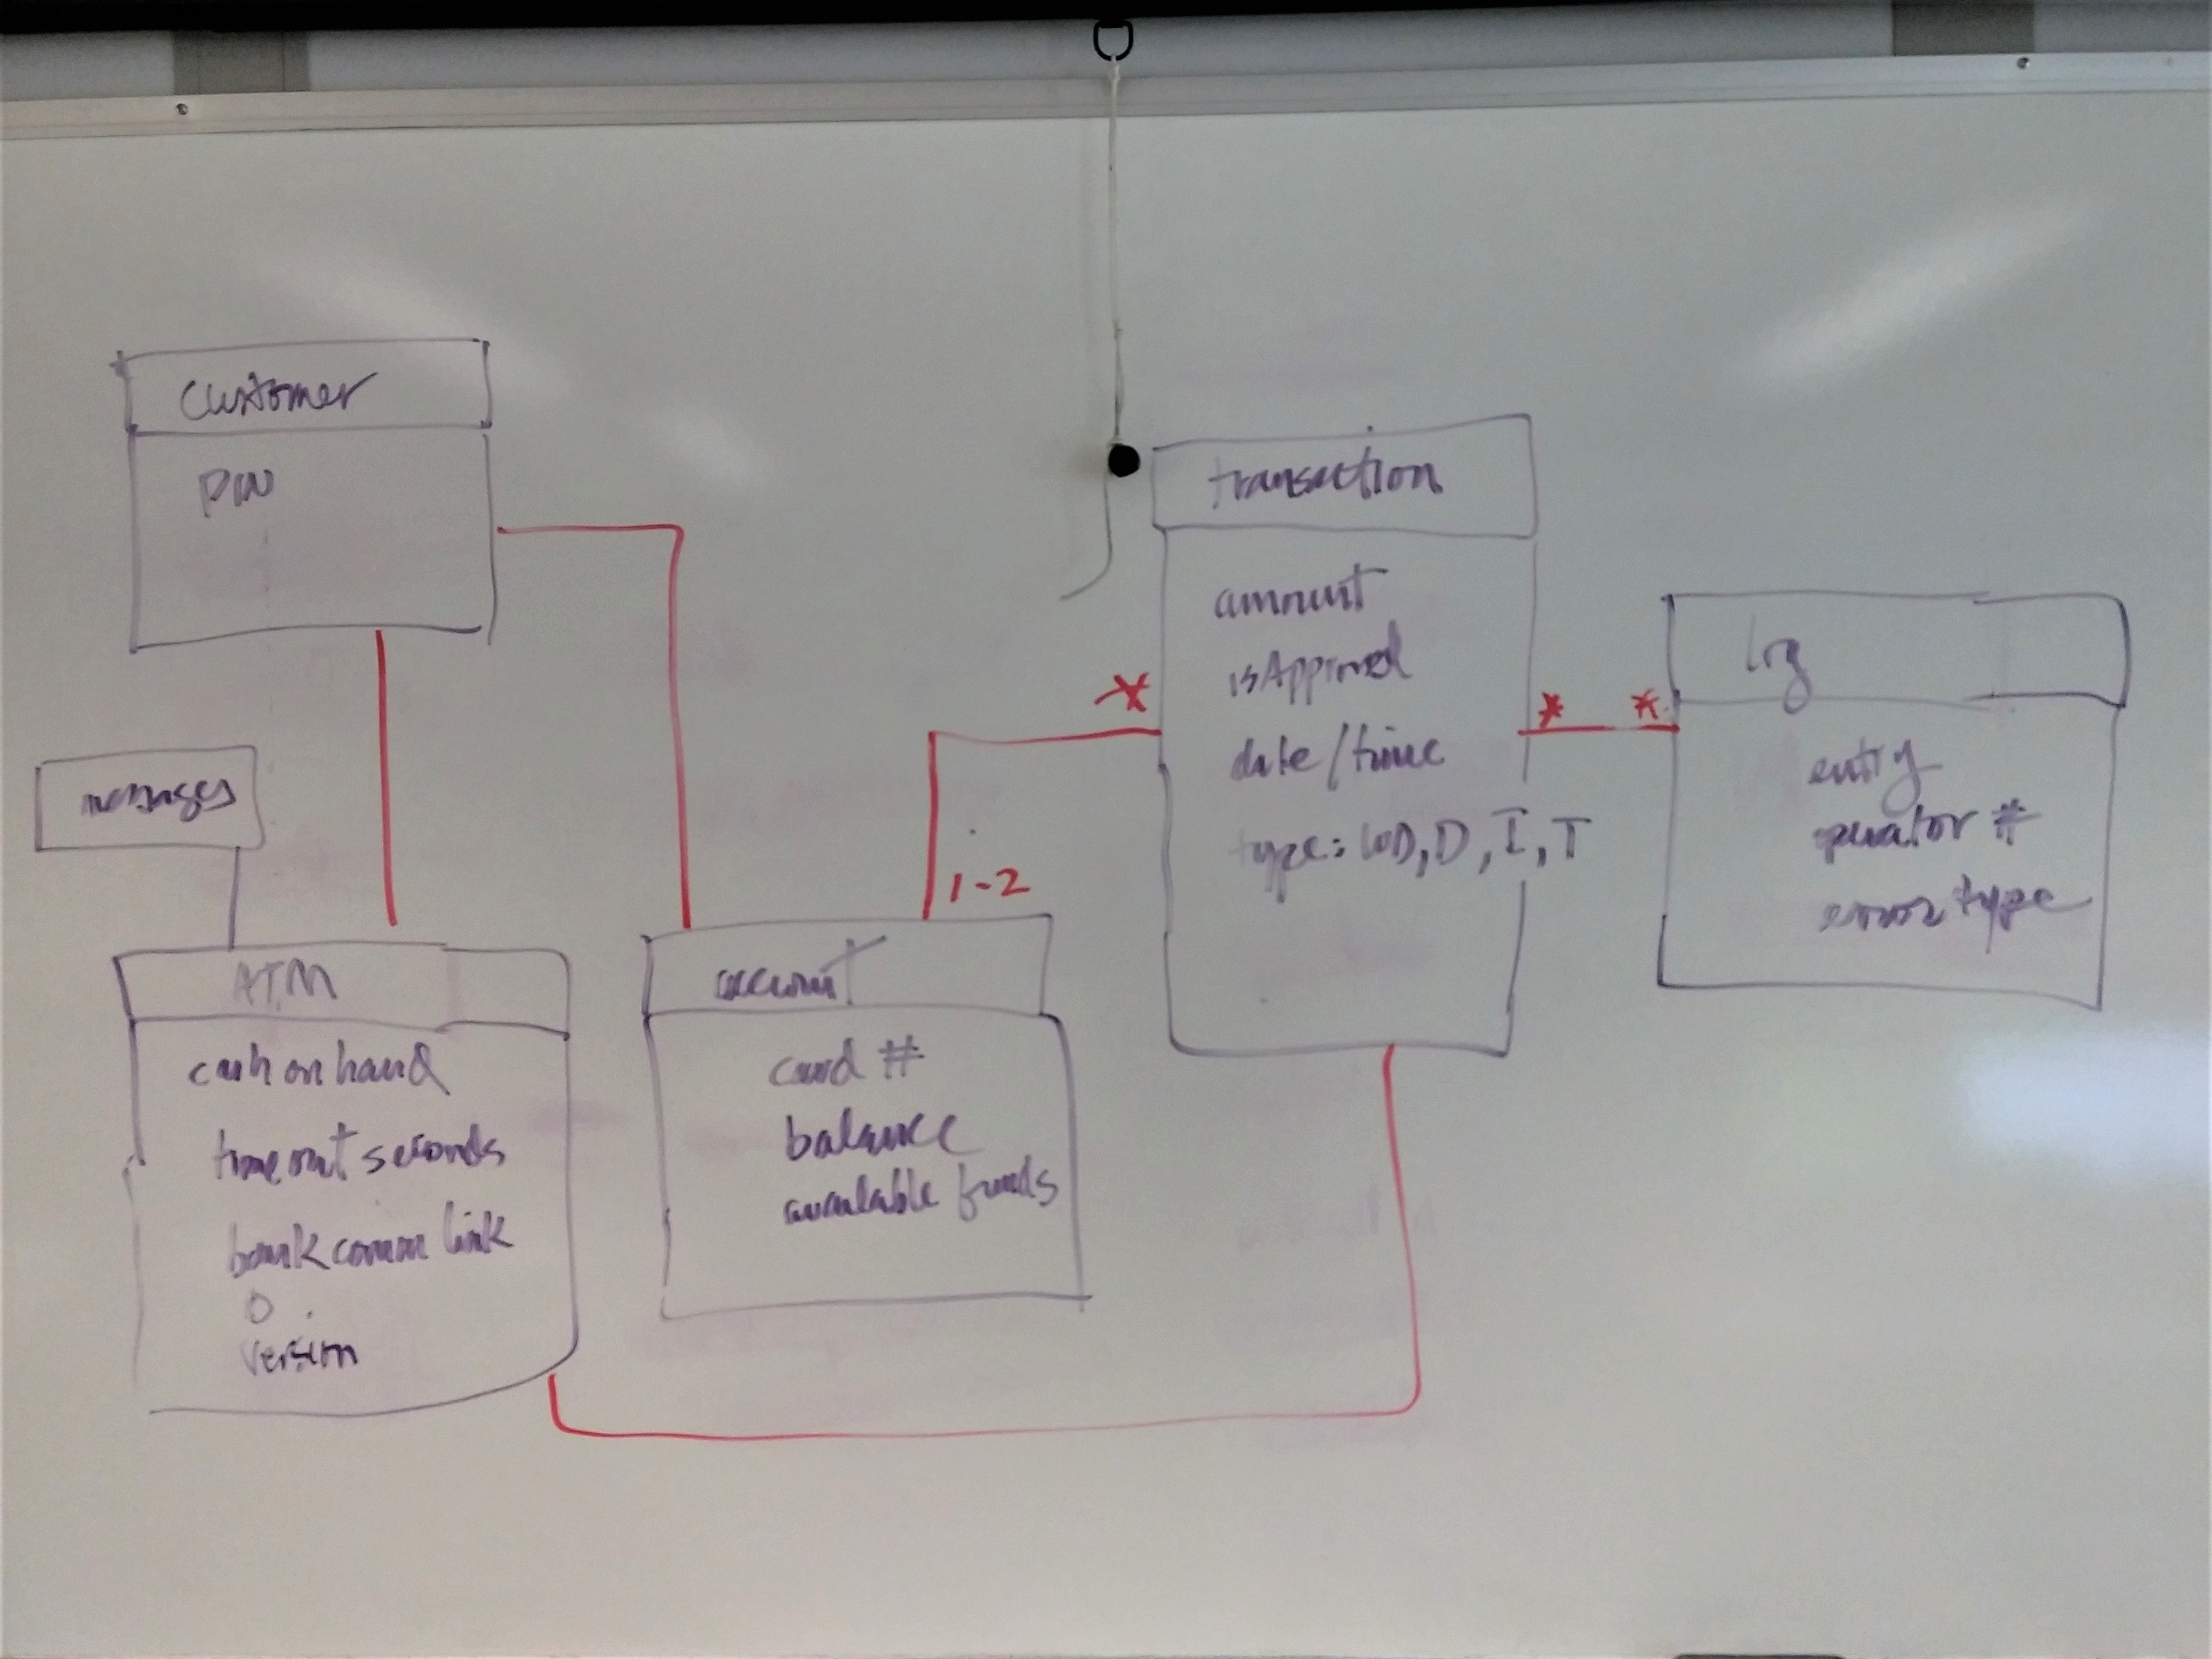 customer
PIN
messages
ATM
cash on hand
timeout seconds
bank comm link
version
account
card #
balance
available funds
1-2
*
transaction
amount
isApproved
date/time
type: WD, D, I, T
*
*
log
entry
operator #
error type